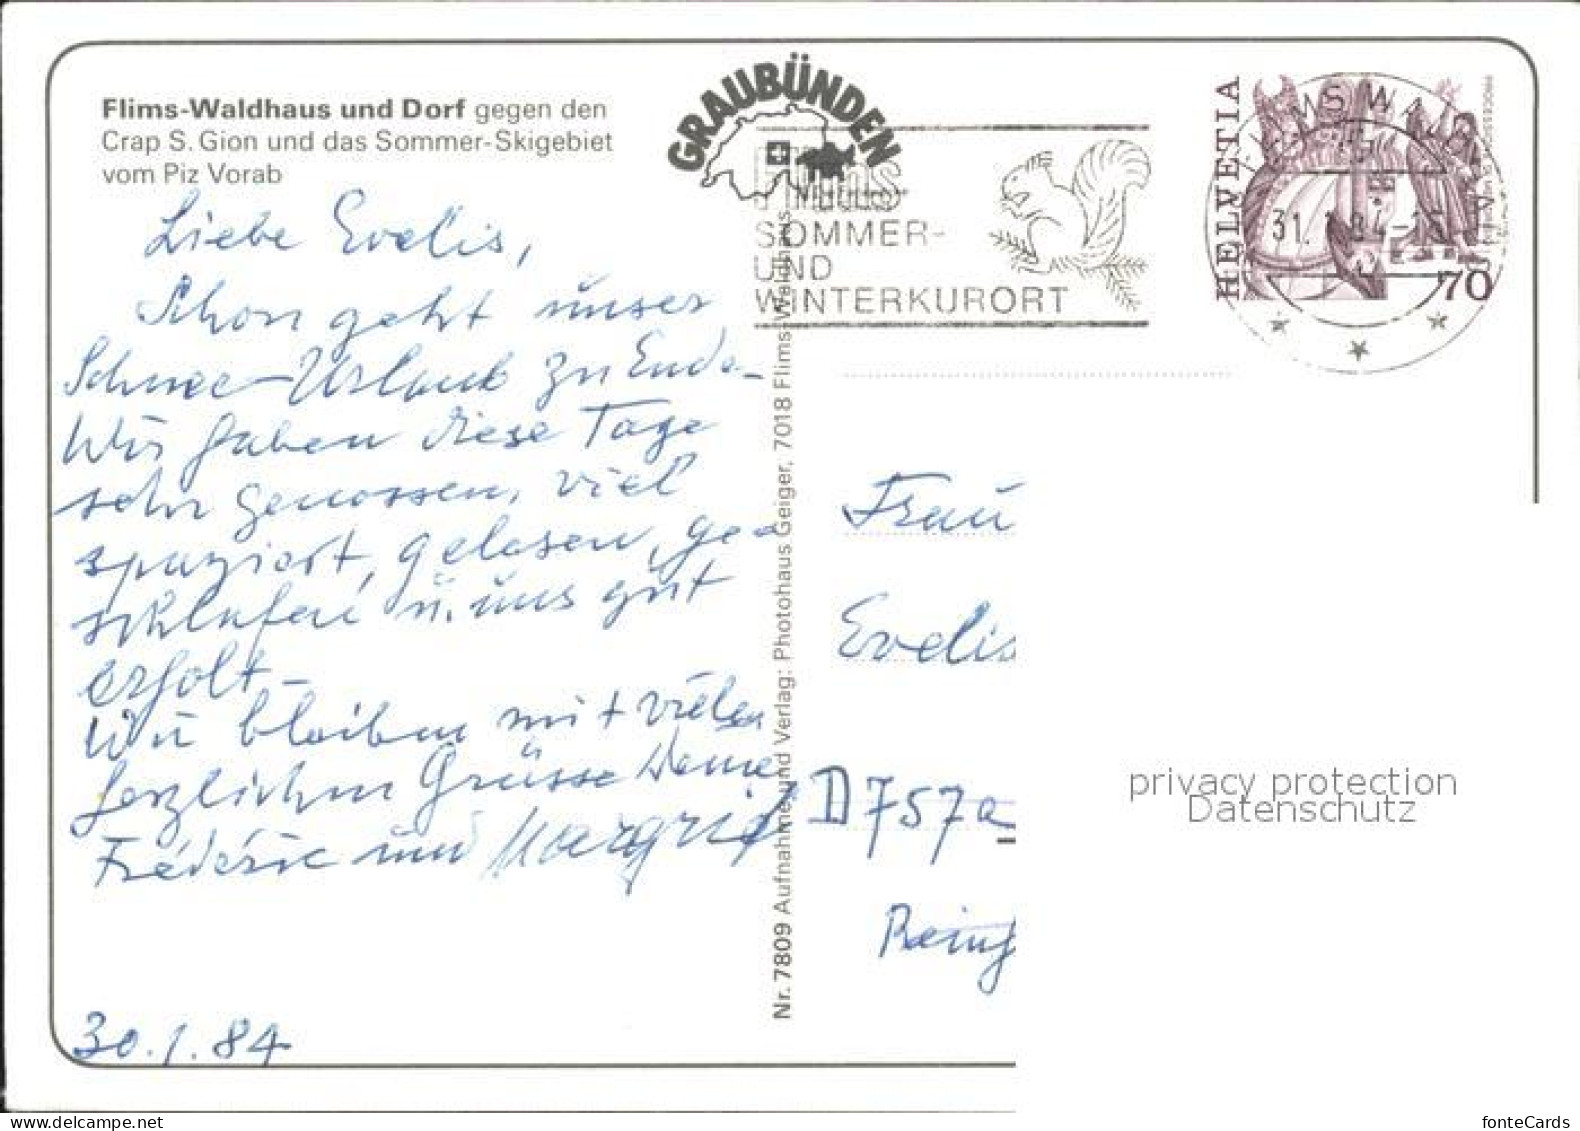 Flims-Waldhaus und Dorf gegen den
Crap S. Gion und das Sommer-Skigebiet
vom Piz Vorab
Liebe Evelis,
Schon geht unser
Schnee-Urlaub zu Ende_
Wir haben diese Tage
sehr genossen, viel
spaziert, gelesen, ge-
schlafen u. uns gut
erholt_
Wir bleiben mit vielen
herzlichen Grüsse Deine
Fréderic und Margrit
30.1.84
Nr. 7809 Aufnahme und Verlag: Photohaus Geiger, 7018 Flims-Waldhaus
GRAUBÜNDEN
Flims
SOMMER-
UND
WINTERKURORT
HELVETIA
70
FLIMS WALDHAUS
31. 1. 84-15
Frau
Evelis
D 757
privacy protection
Datenschutz
fonteCards